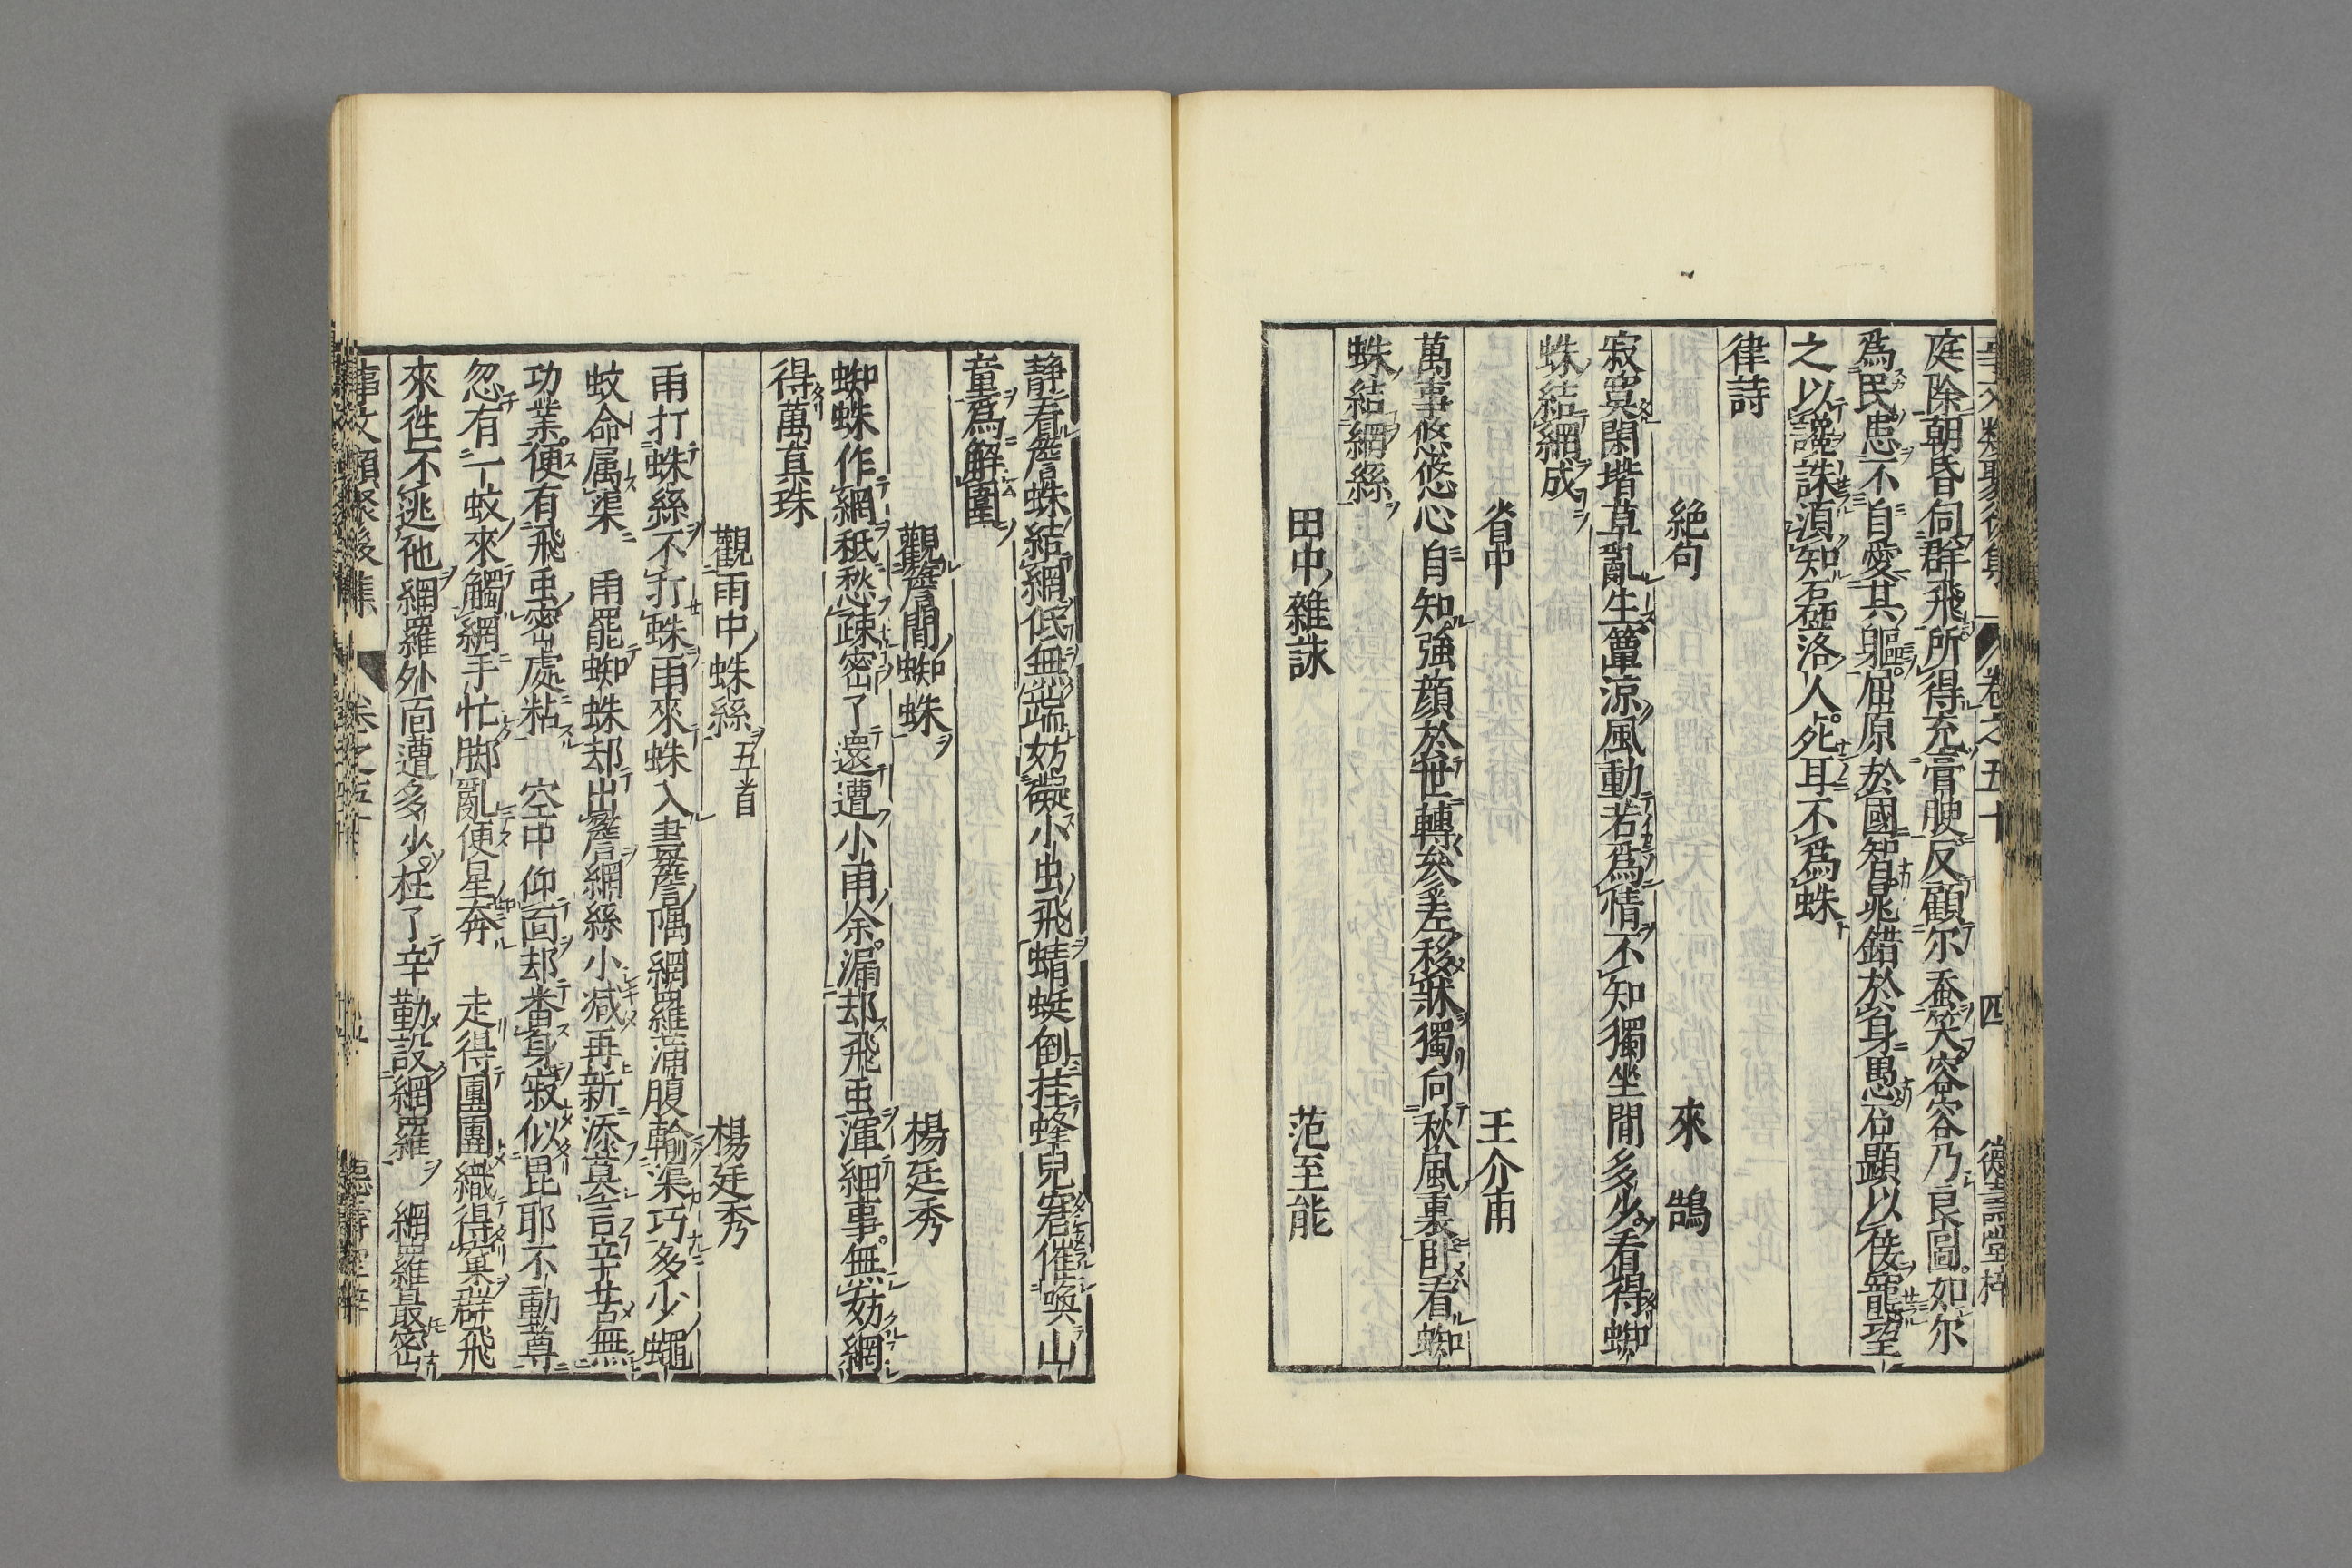 事文類聚後集 卷之五十 四 德壽堂梓
庭除朝昏伺群飛所得充膏腴反顧尔蚕笑容容乃良圖如尔
爲民患不自愛其軀屈原於國智晁錯於身愚右顯以佞寵望
之以讒誅湏知磊落人死耳不爲蛛
律詩
絶句 來鵠
寂寞閑堦草亂生簟涼風動若爲情不知獨坐閒多少看得蜘
蛛結網成
省中 王介甫
萬事悠悠心自知強顔於世轉參差移牀獨向秋風裏卧看蜘
蛛結網絲
田中雜詠 范至能
静看簷蛛結網低無端妨礙小虫飛蜻蜓倒挂蜂兒窘催喚山
童爲解圍
觀簷間蜘蛛 楊廷秀
蜘蛛作網秪愁疎密了還遭小雨余漏却飛虫渾細事無妨網
得萬真珠
觀雨中蛛絲五首 楊廷秀
雨打蛛絲不打蛛雨來蛛入畫簷隅網羅滿腹輸渠巧多少蠅
蚊命属渠 雨罷蜘蛛却出簷網絲小减再新添莫言辛苦無
功業便有飛虫密處粘 空中仰面却番身寂似毘耶不動尊
忽有一蚊來觸網手忙脚亂便星奔 走得團團織得窠群飛
來徃不逃他網羅外面遭多少枉了辛勤設網羅 網羅最密
事文類聚後集 卷之五十